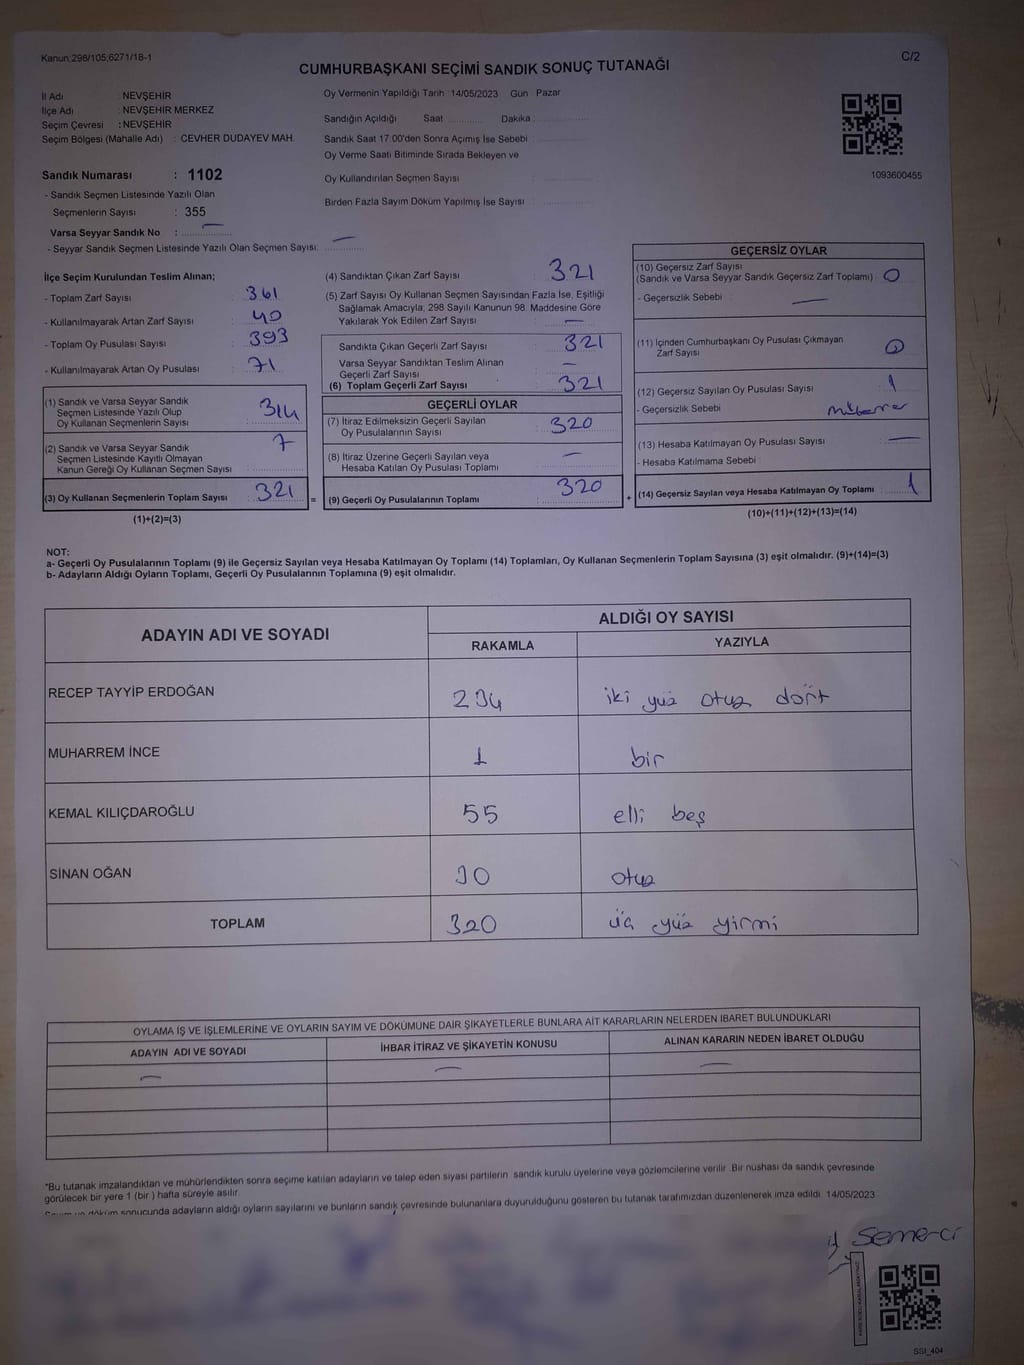 Kanun;298/105;6271/18-1
C/2
CUMHURBAŞKANI SEÇİMİ SANDIK SONUÇ TUTANAĞI
İl Adı : NEVŞEHİR
İlçe Adı : NEVŞEHİR MERKEZ
Seçim Çevresi : NEVŞEHİR
Seçim Bölgesi (Mahalle Adı) : CEVHER DUDAYEV MAH.
Oy Vermenin Yapıldığı Tarih :14/05/2023 Gün Pazar
Sandığın Açıldığı Saat ............ Dakika ............
Sandık Saat 17:00'den Sonra Açımış İse Sebebi :
Oy Verme Saati Bitiminde Sırada Bekleyen ve
Oy Kullandırılan Seçmen Sayısı :
Birden Fazla Sayım Döküm Yapılmış İse Sayısı :
1093600455
Sandık Numarası : 1102
- Sandık Seçmen Listesinde Yazılı Olan
Seçmenlerin Sayısı : 355
Varsa Seyyar Sandık No : —
- Seyyar Sandık Seçmen Listesinde Yazılı Olan Seçmen Sayısı: —
İlçe Seçim Kurulundan Teslim Alınan;
- Toplam Zarf Sayısı : 361
- Kullanılmayarak Artan Zarf Sayısı : 40
- Toplam Oy Pusulası Sayısı : 393
- Kullanılmayarak Artan Oy Pusulası : 71
(1) Sandık ve Varsa Seyyar Sandık
Seçmen Listesinde Yazılı Olup
Oy Kullanan Seçmenlerin Sayısı : 314
(2) Sandık ve Varsa Seyyar Sandık
Seçmen Listesinde Kayıtlı Olmayan
Kanun Gereği Oy Kullanan Seçmen Sayısı : 7
(3) Oy Kullanan Seçmenlerin Toplam Sayısı : 321
(1)+(2)=(3)
(4) Sandıktan Çıkan Zarf Sayısı : 321
(5) Zarf Sayısı Oy Kullanan Seçmen Sayısından Fazla İse, Eşitliği
Sağlamak Amacıyla; 298 Sayılı Kanunun 98. Maddesine Göre
Yakılarak Yok Edilen Zarf Sayısı : —
Sandıkta Çıkan Geçerli Zarf Sayısı : 321
Varsa Seyyar Sandıktan Teslim Alınan
Geçerli Zarf Sayısı : —
(6) Toplam Geçerli Zarf Sayısı : 321
GEÇERLİ OYLAR
(7) İtiraz Edilmeksizin Geçerli Sayılan
Oy Pusulalarının Sayısı : 320
(8) İtiraz Üzerine Geçerli Sayılan veya
Hesaba Katılan Oy Pusulası Toplamı : —
= (9) Geçerli Oy Pusulalarının Toplamı : 320
GEÇERSİZ OYLAR
(10) Geçersiz Zarf Sayısı
(Sandık ve Varsa Seyyar Sandık Geçersiz Zarf Toplamı) : 0
- Geçersizlik Sebebi : —
(11) İçinden Cumhurbaşkanı Oy Pusulası Çıkmayan
Zarf Sayısı : 0
(12) Geçersiz Sayılan Oy Pusulası Sayısı : 1
- Geçersizlik Sebebi :
(13) Hesaba Katılmayan Oy Pusulası Sayısı : —
- Hesaba Katılmama Sebebi :
+ (14) Geçersiz Sayılan veya Hesaba Katılmayan Oy Toplamı : 1
(10)+(11)+(12)+(13)=(14)
NOT:
a- Geçerli Oy Pusulalarının Toplamı (9) ile Geçersiz Sayılan veya Hesaba Katılmayan Oy Toplamı (14) Toplamları, Oy Kullanan Seçmenlerin Toplam Sayısına (3) eşit olmalıdır. (9)+(14)=(3)
b- Adayların Aldığı Oyların Toplamı, Geçerli Oy Pusulalarının Toplamına (9) eşit olmalıdır.
ADAYIN ADI VE SOYADI
ALDIĞI OY SAYISI
RAKAMLA YAZIYLA
RECEP TAYYİP ERDOĞAN 234 iki yüz otuz dört
MUHARREM İNCE 1 bir
KEMAL KILIÇDAROĞLU 55 elli beş
SİNAN OĞAN 30 otuz
TOPLAM 320 üç yüz yirmi
OYLAMA İŞ VE İŞLEMLERİNE VE OYLARIN SAYIM VE DÖKÜMÜNE DAİR ŞİKAYETLERLE BUNLARA AİT KARARLARIN NELERDEN İBARET BULUNDUKLARI
ADAYIN ADI VE SOYADI İHBAR İTİRAZ VE ŞİKAYETİN KONUSU ALINAN KARARIN NEDEN İBARET OLDUĞU
— — —
*Bu tutanak imzalandıktan ve mühürlendikten sonra seçime katılan adayların ve talep eden siyasi partilerin sandık kurulu üyelerine veya gözlemcilerine verilir. Bir nüshası da sandık çevresinde
görülecek bir yere 1 (bir ) hafta süreyle asılır.
Sayım ve döküm sonucunda adayların aldığı oyların sayılarını ve bunların sandık çevresinde bulunanlara duyurulduğunu gösteren bu tutanak tarafımızdan düzenlenerek imza edildi. 14/05/2023
Semerci
SSI_404